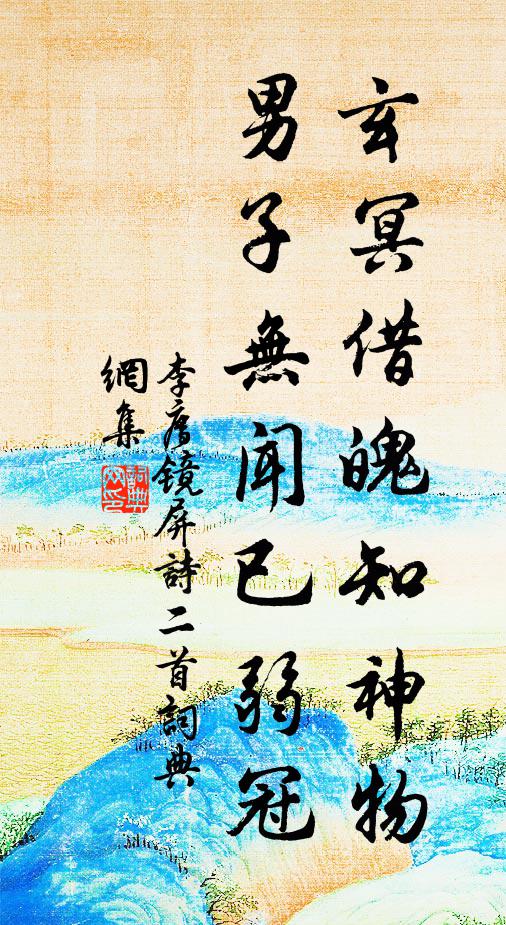 玄冥借魄知神物
男子無聞已弱冠
李膺鏡屏詩二首詞典
網集